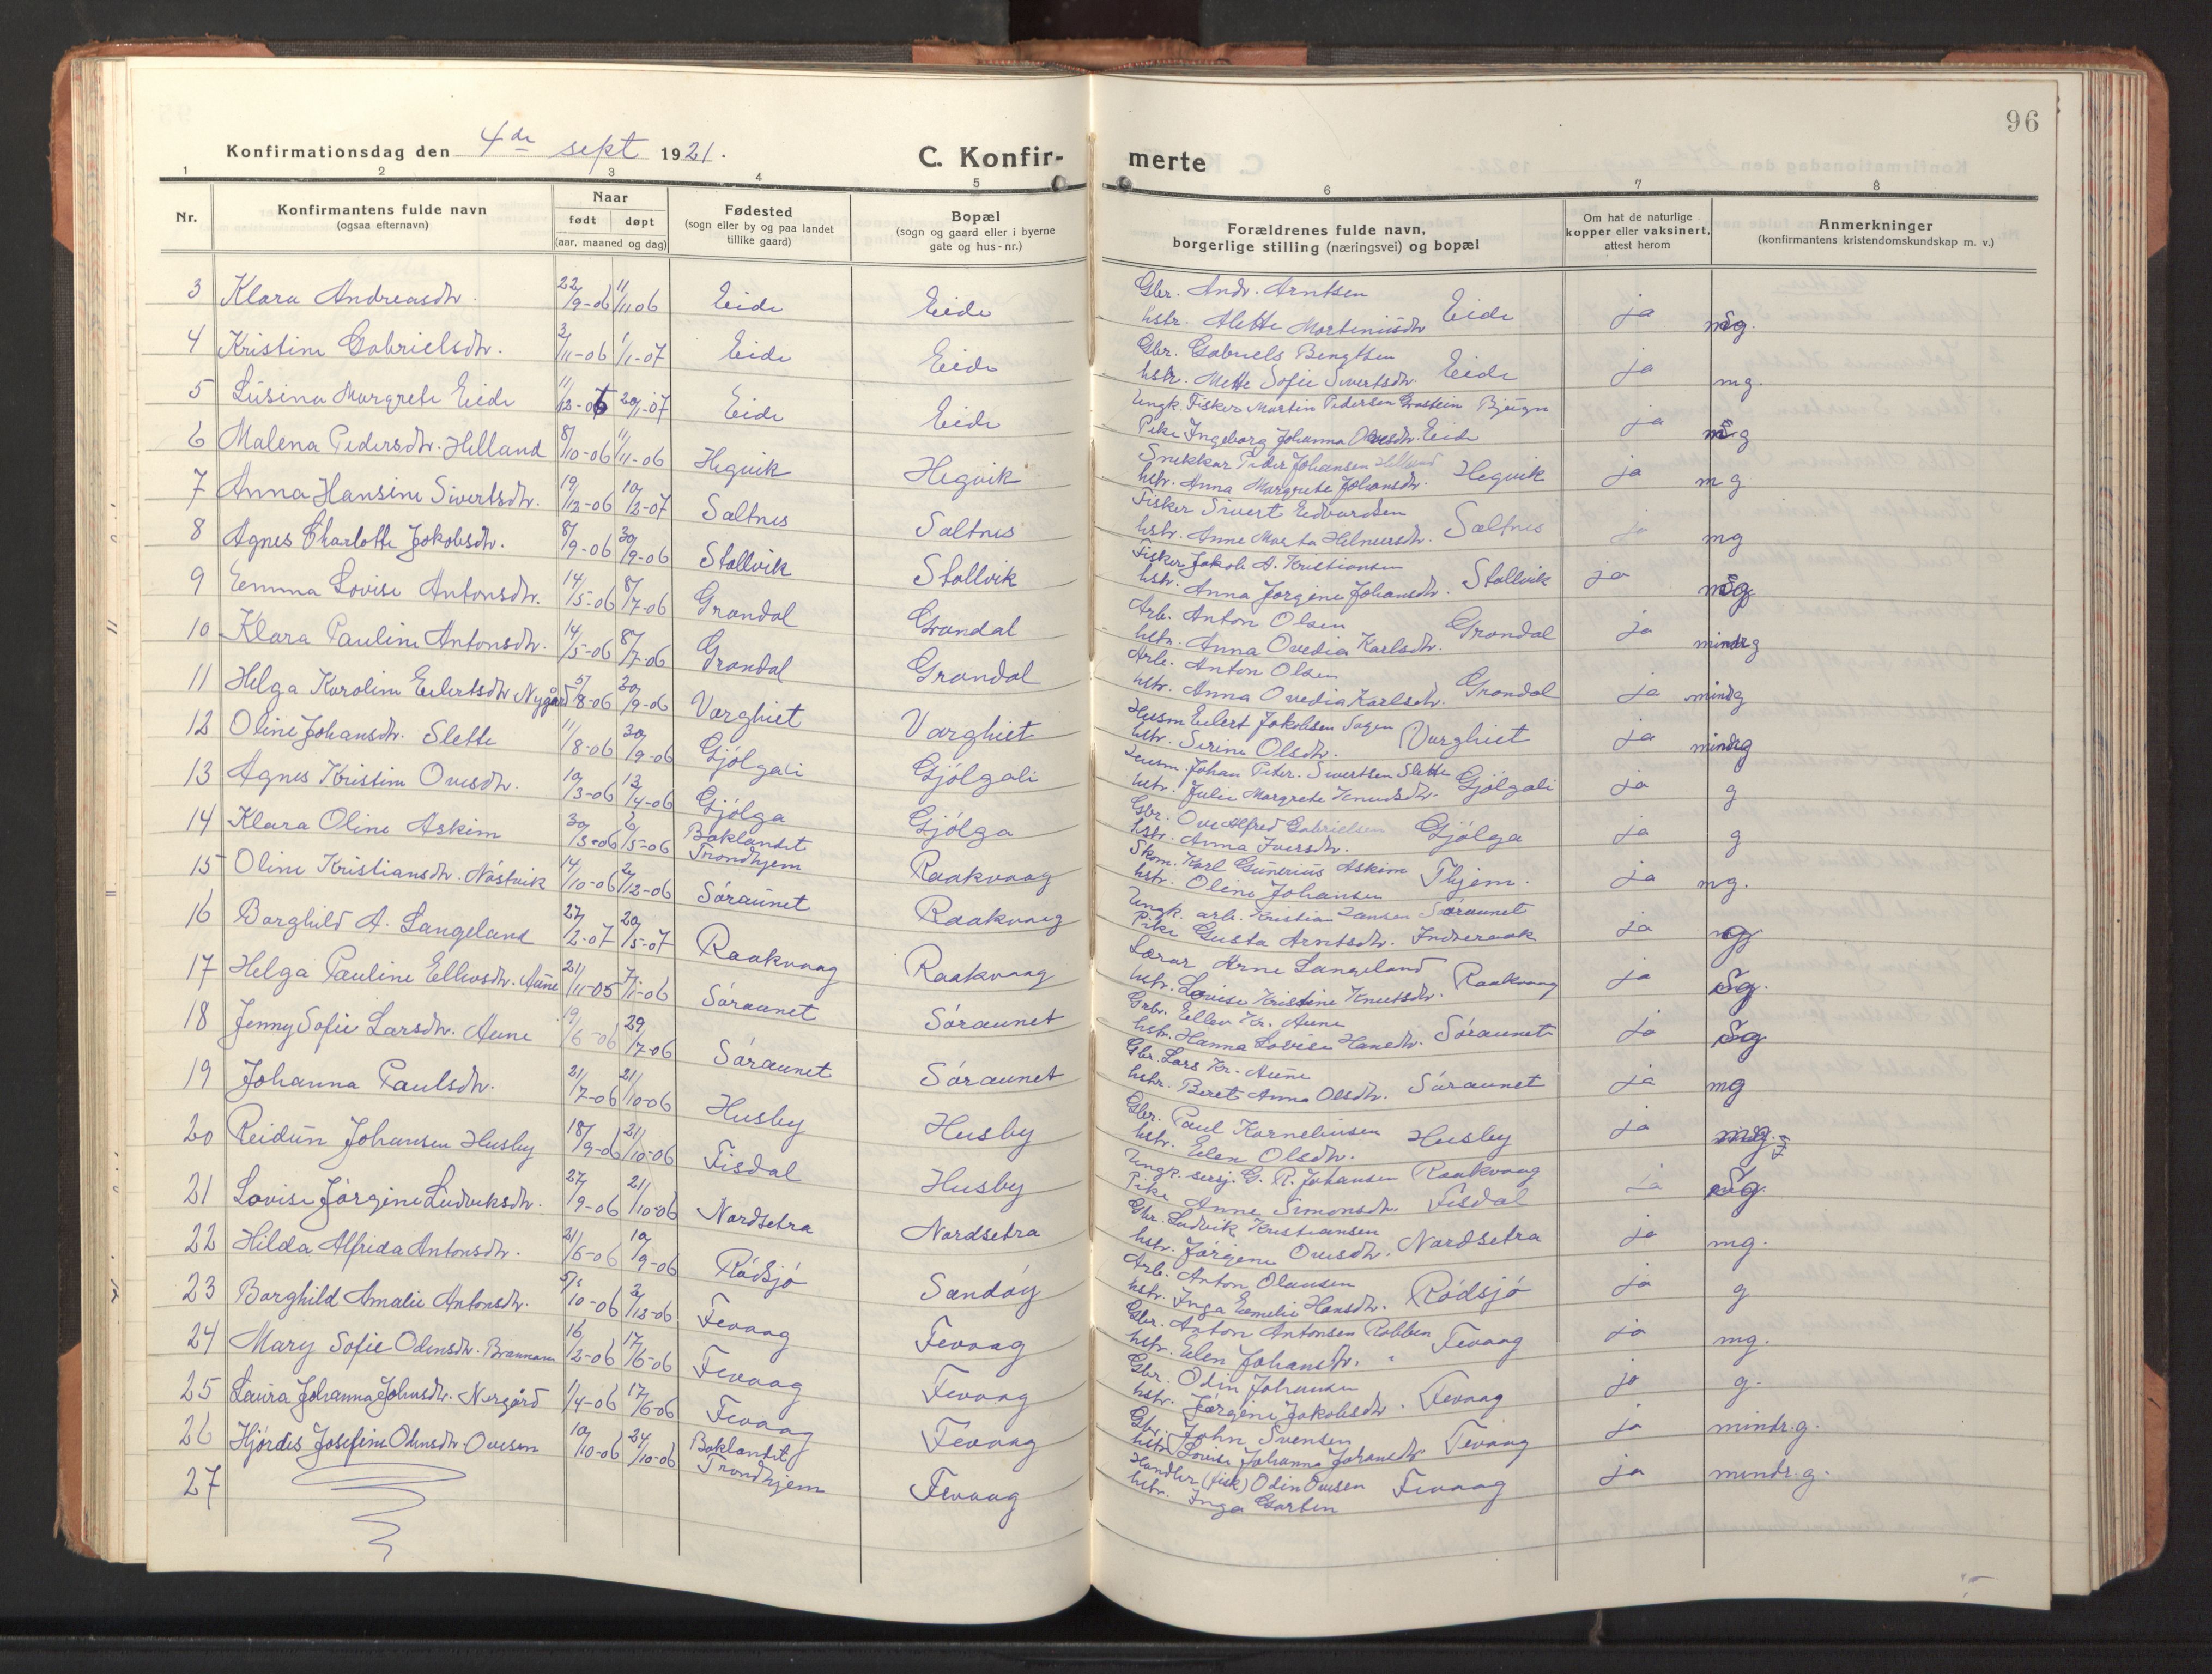 96
Konfirmationsdag den 4de sept 1921.
C. Konfir- merte
1 2 3 4 5 6 7 8
Nr. Konfirmantens fulde navn (ogsaa efternavn) Naar født døpt (aar, maaned og dag) Fødested (sogn eller by og paa landet tillike gaard) Bopæl (sogn og gaard eller i byerne gate og hus-nr.) Forældrenes fulde navn, borgerlige stilling (næringsvei) og bopæl Om hat de naturlige kopper eller vaksinert, attest herom Anmerkninger (konfirmantens kristendomskundskap m. v.)
3 Klara Andreasdtr. 22/9-06 11/11 06 Eide Eide Gbr. Andr. Arntsen
hstr. Alette Martinusdtr Eide ja
4 Kristine Gabrielsdtr. 3/11-06 1/1-07 Eide Eide Gbr. Gabriels Bengtsen
hstr. Mette Sofie Sivertsdtr. Eide ja mg.
5 Lusina Margrete Eide 11/12-06 20/1-07 Eide Eide Ungk. Fisker Martin Pedersen Bjugn
Pike Ingeborg Johanna Olsdtr. Eide ja
6 Malena Pedersdtr. Helland 8/10-06 11/11-06 Hegvik Hegvik Snekker Peder Johansen Helland
hstr. Anna Margrete Johansdtr. Hegvik ja mg
7 Anna Hansine Sivertsdtr. 19/12-06 10/2-07 Saltnes Saltnes Fisker Sivert Edvardsen
hstr. Anne Marta Helmersdtr. Saltnes ja mg
8 Agnes Charlotte Jakobsdtr. 8/9-06 30/9-06 Stallvik Stallvik Fisker Jakob A. Kristiansen
hstr. Anna Jørgine Johansdtr. Stallvik ja
9 Emma Lovise Antonsdtr. 14/5-06 8/7-06 Grandal Grandal Arb. Anton Olsen
hstr. Anna Ovedia Karlsdtr. Grandal ja mindrg
10 Klara Pauline Antonsdtr. 14/5-06 8/7-06 Grandal Grandal Arb. Anton Olsen
hstr. Anna Ovedia Karlsdtr. Grandal ja mindg
11 Helga Karoline Eilertsdtr Nygård 5/8-06 30/9-06 Varghiet Varghiet Husm Eilert Jakobsen Sagen
hstr. Serine Olsdtr. Varghiet ja mindrg
12 Oline Johansdtr. Slette 11/8-06 30/9-06 Gjølgali Gjølgali Husm. Johan Peter. Sivertsen Slette
hstr. Julie Margrete Knudsdtr. Gjølgali ja g
13 Agnes Kristine Ovesdtr. 10/3-06 12/4-06 Gjølga Gjølga Gbr. Ove Alfred Gabrielsen
hstr. Anna Iversdtr. Gjølga ja g
14 Klara Oline Askim 30/3-06 6/5-06 Baklandet Trondhjem Raakvaag Skom. Karl Gunerius Askim
hstr. Oline Johansen Thjem. ja ng.
15 Oline Kristiansdtr. Nästvik 14/10-06 2/12-06 Søraunet Raakvaag Ungk. arb. Kristian Hansen Søraunet
Pike Gusta Arntsdtr. Inderaak ja
16 Borghild A. Langeland 27/2-07 20/5-07 Raakvaag Raakvaag Lærer Arne Langeland
hstr. Lovise Kristine Knutsdtr. Raakvaag ja Sg.
17 Helga Pauline Ellevsdtr. Aune 21/11-05 7/1-06 Søraunet Søraunet Gbr. Ellev Kr. Aune
hstr. Hanna Lovise Hansdtr. Søraunet ja Sg
18 Jenny Sofie Larsdtr. Aune 19/6-06 29/7-06 Søraunet Søraunet Gbr. Lars Kr. Aune
hstr. Beret Anna Olsdtr. Søraunet ja mg
19 Johanna Paulsdtr. 21/7-06 21/10-06 Husby Husby Gbr. Paul Korneliusen
hstr. Elen Olsdtr. Husby ja
20 Reidun Johansen Husby 18/9-06 21/10-06 Fisdal Husby Ungk. sersj. G. R. Johansen Raakvaag
Pike Anne Simonsdtr. Fisdal ja Sg.
21 Lovise Jørgine Ludviksdtr. 27/9-06 21/10-06 Nardsetra Nardsetra Gbr. Ludvik Kristiansen
hstr. Jørgine Ovesdtr. Nardsetra ja mg.
22 Hilda Alfrida Antonsdtr. 21/6-06 10/9-06 Rødsjø Sandøy Arb. Anton Olausen
hstr. Inga Emelie Hansdtr. Rødsjø ja g
23 Borghild Amalie Antonsdtr. 5/10-06 2/12-06 Fevaag Fevaag Gbr. Anton Antonsen Robben
hstr. Elen Johansdtr. Fevaag ja mg.
24 Mary Sofie Odinsdtr. 16/2-06 17/6-06 Fevaag Fevaag Gbr. Odin Johansen
hstr. Jørgine Jakobsdtr. Fevaag ja g.
25 Laura Johanna Johnsdtr. Nergård 1/4-06 17/6-06 Fevaag Fevaag Gbr. John Svensen
hstr Lovise Johanna Johansdtr Fevaag ja mindr.g.
26 Hjørdis Josefine Odinsdtr Ovesen 10/10-06 24/10-06 Baklandet Trondhjem Fevaag Handler (fisk) Odin Ovesen
hstr. Inga Garten Fevaag ja mindr.g.
27